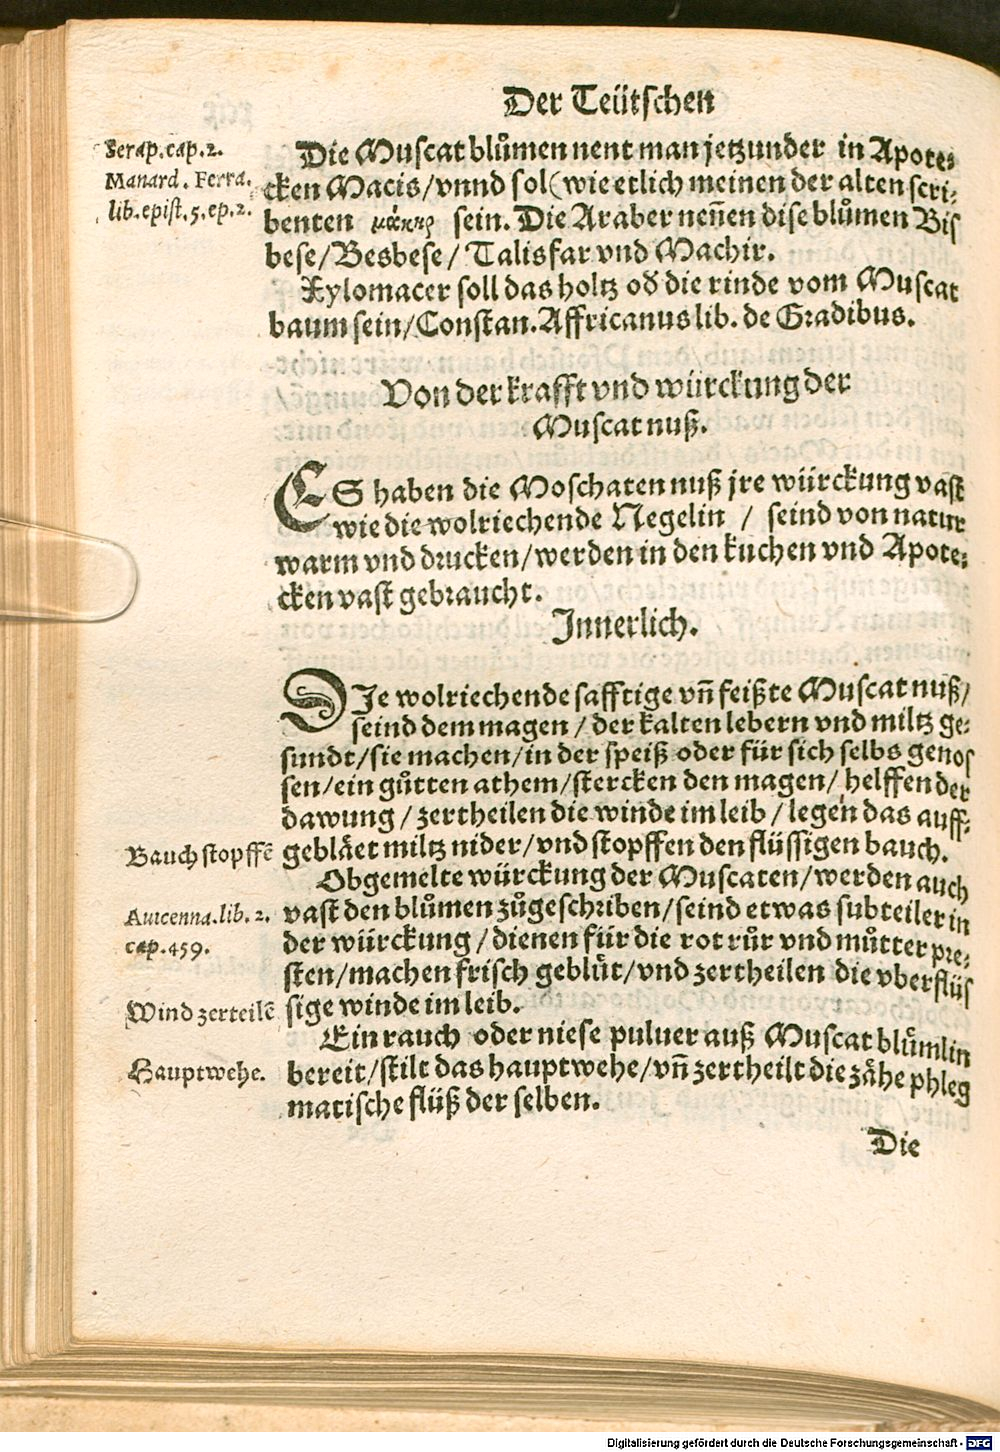 Der Teütschen
Serap. cap. 2.
Manard. Ferra.
lib. epist. 5. ep. 2.
Die Muscat blůmen nent man jetzunder in Apote⸗
cken Macis/vnnd sol (wie etlich meinen der alten scri⸗
benten μάκηρ sein. Die Araber neñen dise blůmen Bis
bese/Besbese/ Talisfar vnd Machir.
Xylomacer soll das holtz oď die rinde vom Muscat
baum sein/Constan. Affricanus lib. de Gradibus.
Von der krafft vnd würckung der
Muscat nuß.
ES haben die Moschaten nuß jre würckung vast
wie die wolriechende Negelin / seind von natur
warm vnd drucken/werden in den kuchen vnd Apote⸗
cken vast gebraucht.
Innerlich.
DIe wolriechende safftige vñ feißte Muscat nuß/
seind dem magen / der kalten lebern vnd miltz ge⸗
sundt/sie machen/in der speiß oder für sich selbs genos
sen/ein gůtten athem/stercken den magen/ helffen der
dawung / zertheilen die winde im leib / legen das auff⸗
gebläet miltz nider/vnd stopffen den flüssigen bauch.
Bauch stopffē
Obgemelte würckung der Muscaten/werden auch
vast den blůmen zůgeschriben/seind etwas subteiler in
der würckung / dienen für die rot růr vnd můtter pre⸗
sten/machen frisch geblůt/vnd zertheilen die vberflüs
sige winde im leib.
Auicenna. lib. 2.
cap. 459.
Wind zerteilē
Ein rauch oder niese puluer auß Muscat blůmlin
bereit/stilt das hauptwehe/vñ zertheilt die zähe phleg
matische flüß der selben.
Hauptwehe.
Die
Digitalisierung gefördert durch die Deutsche Forschungsgemeinschaft - DFG